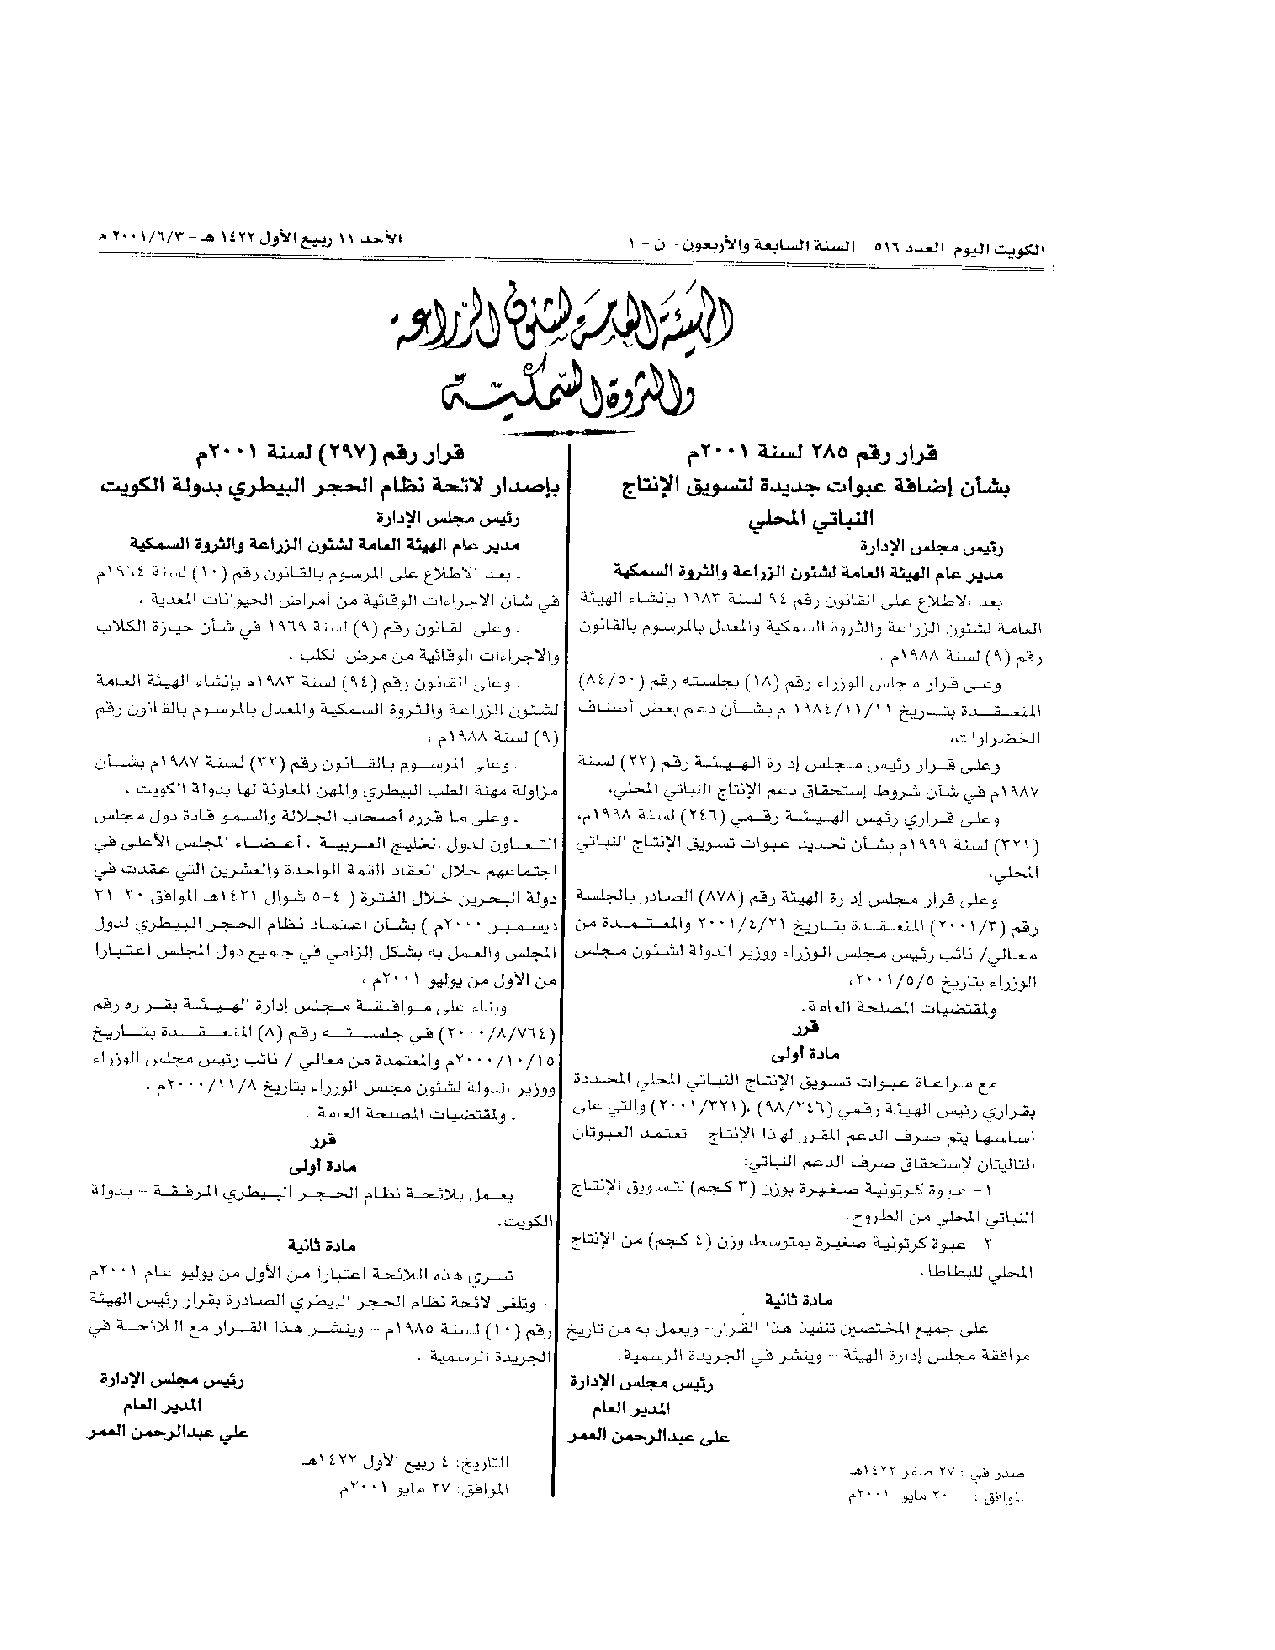 الكويت اليوم العدد ٥١٦ السنة السابعة والأربعون - ن - ١
الأحد ١١ ربيع الأول ١٤٢٢ هـ - ٢٠٠١/٦/٣م
الهيئة العامة لشئون الزراعة
والثروة السمكية
قرار رقم ٢٨٥ لسنة ٢٠٠١م
بشأن إضافة عبوات جديدة لتسويق الإنتاج
النباتي المحلي
رئيس مجلس الإدارة
مدير عام الهيئة العامة لشئون الزراعة والثروة السمكية
بعد الاطلاع على القانون رقم ٩٤ لسنة ١٩٨٣ بإنشاء الهيئة
العامة لشئون الزراعة والثروة السمكية والمعدل بالمرسوم بالقانون
رقم (٩) لسنة ١٩٨٨م .
وعلى قرار مجلس الوزراء رقم (١٨) بجلسته رقم (٨٤/٥٠)
المنعقدة بتاريخ ١٩٨٤/١١/١١ م بشأن دعم بعض أصناف
الخضراوات،
وعلى قرار رئيس مجلس إدارة الهيئة رقم (٢٢) لسنة
١٩٨٧م في شأن شروط إستحقاق دعم الإنتاج النباتي المحلي،
وعلى قراري رئيس الهيئة رقمي (٢٤٦) لسنة ١٩٩٨م،
(٣٢١) لسنة ١٩٩٩م بشأن تحديد عبوات تسويق الإنتاج النباتي
المحلي،
وعلى قرار مجلس إدارة الهيئة رقم (٨٧٨) الصادر بالجلسة
رقم (٢٠٠١/٣) المنعقدة بتاريخ ٢٠٠١/٤/٢١ والمعتمدة من
معالي/ نائب رئيس مجلس الوزراء ووزير الدولة لشئون مجلس
الوزراء بتاريخ ٢٠٠١/٥/٥،
ولمقتضيات المصلحة العامة.
قرر
مادة أولى
مع مراعاة عبوات تسويق الإنتاج النباتي المحلي المحددة
بقراري رئيس الهيئة رقمي (٩٨/٢٤٦)، (٢٠٠١/٣٢١) والتي على
أساسها يتم صرف الدعم المقرر لهذا الإنتاج تعتمد العبوتان
التاليتان لاستحقاق صرف الدعم النباتي:
١- عبوة كرتونية صغيرة بوزن (٣ كجم) لتسويق الإنتاج
النباتي المحلي من الطروح.
٢ عبوة كرتونية صغيرة بمتوسط وزن (٤ كجم) من الإنتاج
المحلي للبطاطا.
مادة ثانية
على جميع المختصين تنفيذ هذا القرار- ويعمل به من تاريخ
موافقة مجلس إدارة الهيئة - وينشر في الجريدة الرسمية.
رئيس مجلس الإدارة
المدير العام
على عبدالرحمن العمر
صدر في : ٢٧ صفر ١٤٢٢هـ
الموافق : ٢٠ مايو ٢٠٠١م
قرار رقم (٢٩٧) لسنة ٢٠٠١م
بإصدار لائحة نظام الحجر البيطري بدولة الكويت
رئيس مجلس الإدارة
مدير عام الهيئة العامة لشئون الزراعة والثروة السمكية
. بعد الاطلاع على المرسوم بالقانون رقم (١٠) لسنة ١٩٦٤م
في شأن الاجراءات الوقائية من أمراض الحيوانات المعدية .
. وعلى القانون رقم (٩) لسنة ١٩٦٩ في شأن حيازة الكلاب
والاجراءات الوقائية من مرض الكلب .
. وعلى القانون رقم (٩٤) لسنة ١٩٨٣م بإنشاء الهيئة العامة
لشئون الزراعة والثروة السمكية والمعدل بالمرسوم بالقانون رقم
(٩) لسنة ١٩٨٨م .
. وعلى المرسوم بالقانون رقم (٢٢) لسنة ١٩٨٧م بشأن
مزاولة مهنة الطب البيطري والمهن المعاونة لها بدولة الكويت .
. وعلى ما قرره أصحاب الجلالة والسمو قادة دول مجلس
التعاون لدول الخليج العربية . أعضاء المجلس الأعلى في
اجتماعهم خلال انعقاد القمة الواحدة والعشرين التي عقدت في
دولة البحرين خلال الفترة ( ٤-٥ شوال ١٤٢١هـ الموافق ٣٠ ٣١
ديسمبر ٢٠٠٠م ) بشأن اعتماد نظام الحجر البيطري لدول
المجلس والعمل به بشكل إلزامي في جميع دول المجلس اعتبارا
من الأول من يوليو ٢٠٠١م .
وبناء على موافقة مجلس إدارة الهيئة بقراره رقم
(٢٠٠٠/٨/٧٦٤) في جلسته رقم (٨) المنعقدة بتاريخ
٢٠٠٠/١٠/١٥م والمعتمدة من معالي / نائب رئيس مجلس الوزراء
ووزير الدولة لشئون مجلس الوزراء بتاريخ ٢٠٠٠/١١/٨م .
. ولمقتضيات المصلحة العامة .
قرر
مادة أولى
يعمل بلائحة نظام الحجر البيطري المرفقة - بدولة
الكويت.
مادة ثانية
تسري هذه اللائحة اعتبارا من الأول من يوليو عام ٢٠٠١م
. وتلغى لائحة نظام الحجر البيطري الصادرة بقرار رئيس الهيئة
رقم (١٠) لسنة ١٩٨٥م - وينشر هذا القرار مع اللائحة في
الجريدة الرسمية .
رئيس مجلس الإدارة
المدير العام
علي عبدالرحمن العمر
التاريخ: ٤ ربيع الأول ١٤٢٢هـ
الموافق: ٢٧ مايو ٢٠٠١م